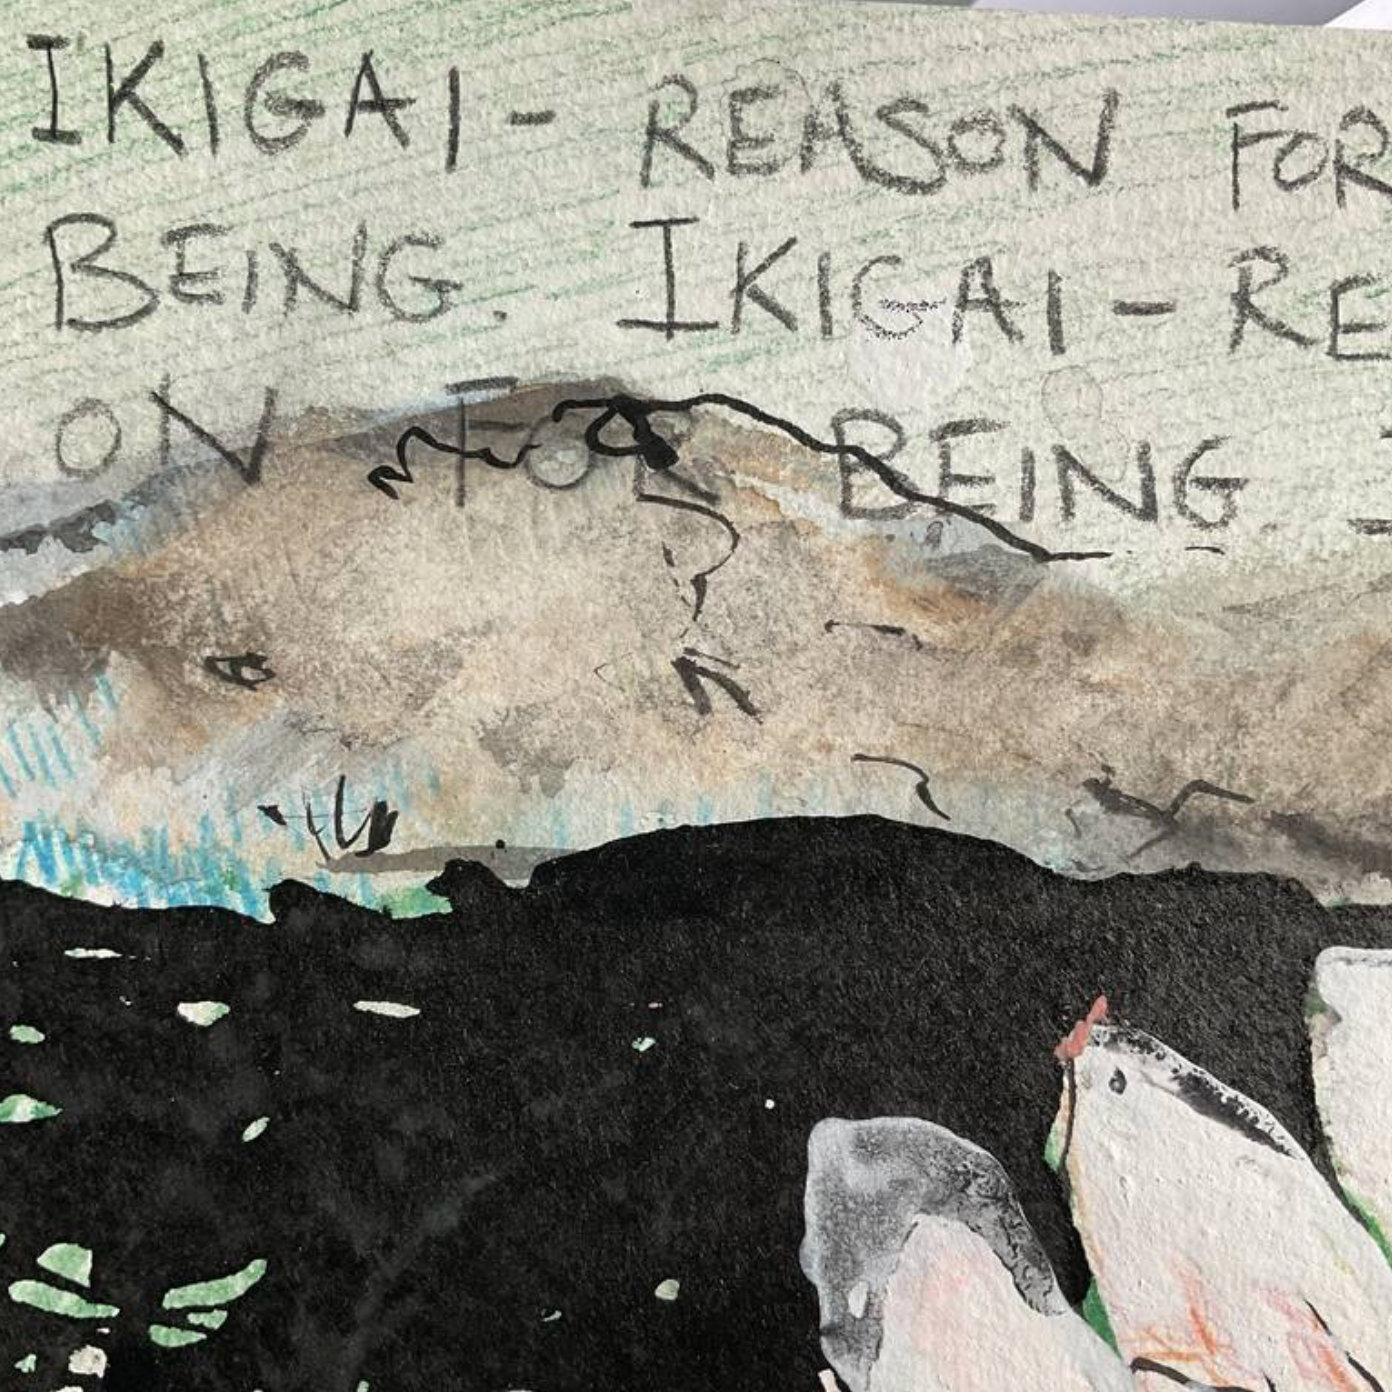 IKIGAI - REASON FOR
BEING. IKIGAI - RE
ON FOR BEING.